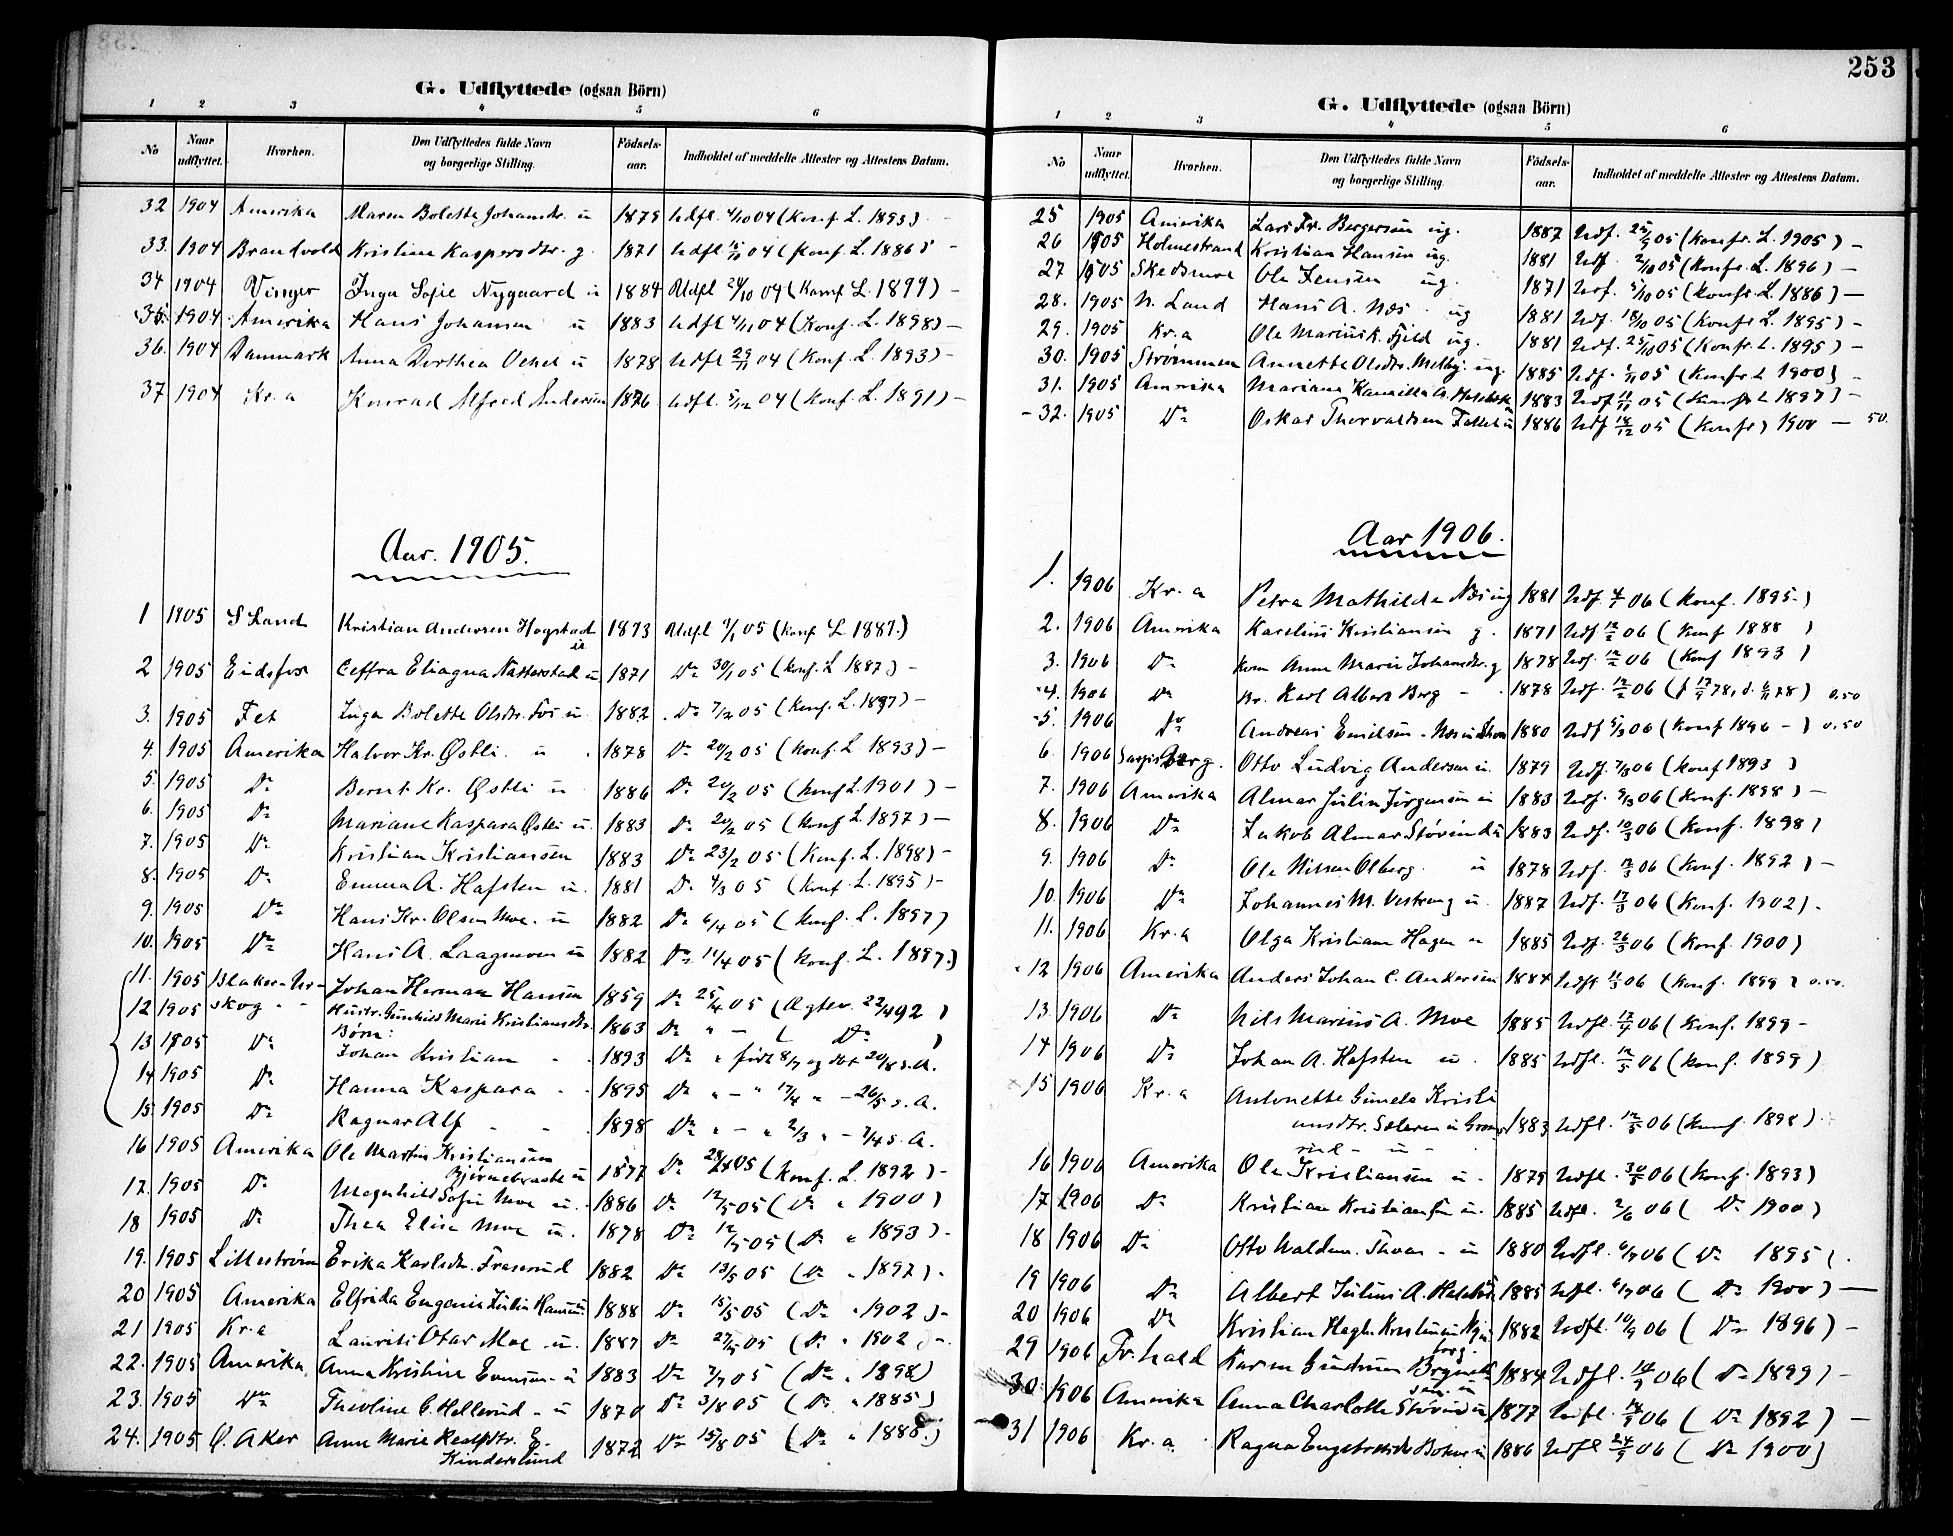 253
G. Udflyttede (ogsaa Börn)
1 2 3 4 5 6
No Naar udflyttet. Hvorhen. Den Udflyttedes fulde Navn og borgerlige Stilling. Födsels-aar. Indholdet af meddelte Attester og Attestens Datum.
32 1904 Amerika Maren Bolette Johansdr. u 1879 Udfl. 4/10 04 (Konf. L. 1893) -
33. 1904 Brandvold Kristine Kaspersdtr. g 1871 Udfl 04 (Konf. L. 1886) -
34 1904 Vinger Inga Sofie Nygaard u 1884 Udfl 24/10 04 (Konf L. 1899) -
35. 1904 Amerika Hans Johansen u 1883 Udfl 4/11 04 (Konf. L. 1898) -
36. 1904 Danmark Anna Dorthea u 1878 Udfl 29/11 04 (Konf. L. 1893) -
37 1904 Kr.a Konrad Alfred Andersen 1876 Udfl. 5/12 04 (Konf. L. 1891) -
Aar. 1905.
1 1905 S Land Kristian Andersen Hogstad 1873 Udfl 05 (Konf L 1887.)
u
2 1905 Eidsfos Ceffra Eliagna Natterstad u. 1871 Do 30/1 05 (Konf. L 1887) -
3. 1905 Fet Inga Bolette Olsdtr. Fos u. 1882 Do 7/2 05 (Konf. L. 1897) -
4. 1905 Amerika Halvor Kr. Østli u 1878 Do 20/2 05 (Konf. L. 1893) -
5. 1905 Do Bernt Kr. Østli u 1886 Do 20/2 05 (Konf L. 1901) -
6. 1905 Do Mariane Kaspara Østli u. 1883 Do 20/2 05 (Konf L. 1897) -
7. 1905 Do Kristian Kristiansen 1883 Do 23/2 05 (Konf. L. 1898) -
8. 1905 Do Emma A. Hafsten u. 1881 Do 4/3 05 (Konf. L. 1895) -
9. 1905 Do Hans Kr. Olsen Moe. u 1882 Do 6/4 05 (Konf. L. 1897)
10. 1905 Do Hans A. Laagmoen u 1882 Do 11/4 05 (Konf. L. 1897.)
11. 1905 Blaker- Johan Herman Hansen 1859 Do 25/4 05 (Ægtev. 22/4 92)
12 1905 skog - - Hustr. Gunhild Marie Kristiansdtr. 1863 Do " - ( Do )
Børn:
13 1905 Do Johan Kristian 1893 Do " født 8/7 og døbt 20/8 s.A.
14 1905 Do Hanna Kaspara - 1895 Do " - " 17/4 " - 26/5 s. A.
15 1905 Do Ragnar Alf - - 1898 Do " - " 2/3 " - 7/4 s. A.
16 1905 Amerika Ole Martin Kristiansen
Bjørnebraate u 1877 Do 28/4 05 (Konf. L. 1892) -
17. 1905 Do Magnhild Sofie Moe u. 1886 Do 12/5 05 (Do " 1900)
18 1905 Do Thea Elise Moe u. 1878 Do 12/5 05 (Do " 1893) -
19. 1905 Lillestrøm Erika Karlsdtr. Fraserud 1882 Do 13/5 05 (Do " 1897) -
20 1905 Amerika Elfrida Eugenie Julie Hansen 1888 Do 15/5 05 (Do " 1902) -
21 1905 Kr.a Laurits Otar Moe u. 1887 Do 27/5 05 (Do " 1902) -
22. 1905 Amerika Anna Kristine Evensen - u 1883 Do 7/7 05 (Do " 1898)
23. 1905 Do Theoline C. Hellerud - u 1870 Do 3/8 05 (Do " 1885)
24. 1905 Ø. Aker Anne Marie E. 1872 Do 15/8 05 (Do " 1888.)
Kinderslund
G. Udflyttede (ogsaa Börn)
1 2 3 4 5 6
No Naar udflyttet. Hvorhen. Den Udflyttedes fulde Navn og borgerlige Stilling. Födsels-aar. Indholdet af meddelte Attester og Attestens Datum.
25 1905 Amerika Lars Fr. Bergersen ug. 1887 Udf. 25/9 05 (Konfr. L. 1905) -
26 1905 Holmestrand Kristian Hansen ug. 1881 Udf 2/10 05 (Konfr. L. 1896) -
27 1905 Skedsmoe Ole Jensen ug. 1871 Udf. 5/10 05 (Konfr. L. 1886) -
28. 1905 N. Land Hans A. Næs ug 1881 Udf. 18/10 05 (Konfr L. 1895) -
29. 1905 Kr.a Ole Marius K. Fjeld ug. 1881 Udf. 25/10 05 (Konfr. L. 1895) -
30. 1905 Strømmen Annette Olsdtr. Melby. ug. 1885 Udf. 05 (Konfr L 1900) -
31. 1905 Amerika Mariane Kamilla A. 1883 Udf 11/11 05 (Konfr L 1897) -
- 32. 1905 Do Oskar Thorvaldsen u 1886 Udf 18/12 05 (Konfr) 1900 - 50.
Aar 1906.
1. 1906 Kr.a Petra Mathilde Næs ug 1881 Udf. 4/1 06 (Konf. 1895.)
2. 1906 Amerika Karelius Kristiansen g. 1871 Udf 12/2 06 (Konf 1888 )
3. 1906 Do Kone Anne Marie Johansdtr. g 1878 Udf. 12/2 06 (Konf 1893 )
4. 1906 Do Br. Karl Albert Berg - 1878 Udf. 12/2 06 (f 17/9 78, d. 78) 0.50
5. 1906 Do Andreas Emilsen - 1880 Udf 5/3 06 (Konf 1896 - ) 0.50
6. 1906 Sarpsborg. Otto Ludvig Andersen u. 1879 Udf. 7/3 06 (Konf 1893 )
7. 1906 Amerika Almar Julin Jørgensen u 1883 Udf. 9/3 06 (Konf. 1898) -
8. 1906 Do Jakob Almar Støvind u 1883 Udf. 10/3 06 (Konf. 1898)
9. 1906 Do Ole Nilssen Olberg. u 1878 Udf. 12/3 06 (Konf. 1892) -
10. 1906 Do Johannes M. Vestreng u. 1887 Udf. 17/3 06 (Konf. 1902) -
11. 1906 Kr.a Olga Kristiane Hagen u 1885 Udf. 26/3 06 (Konf. 1900)
12 1906 Amerika Anders Johan C. Andersen 1884 Udf 06 (Konf. 1899) 0.50.
13. 1906 Do Nils Marius A. Moe 1885 Udfl. 06 (Konf. 1899 -
14 1906 Do Johan A. Hafsten u. 1885 Udfl. 12/5 06 (Konf. 1899)
15 1906 Kr.a Antonette Gunela Kristi
ansdtr. 1883 Udfl. 12/5 06 (Konf. 1898).
rud - u -
16 1906 Amerika Ole Kristiansen u. 1879 Udfl. 30/5 06 (Konf. 1893)
17 1906 Do Kristian Kristiansen u. 1885 Udfl. 2/6 06 ( Do 1900)
18 1906 Do Otto Waldem. Thoas - u 1880 Udfl. 6/7 06 ( Do 1895).
19 1906 Do Albert Julius A. 1885 Udfl. 6/7 06 ( Do 1900) -
20 1906 Do Kristian Hagb. Kristiansen 1882 Udfl. 10/9 06 ( Do 1896) -
29 1906 Fr.hald Karen Gudrun 1884 Udfl. 14/9 06 ( Do 1899) -
30 1906 Amerika Anna Charlotte Støvind u 1877 Udfl. 14/9 06 ( Do 1892) -
31 1906 Kr.a Ragna u 1886 Udfl 24/9 06 ( Do 1900)